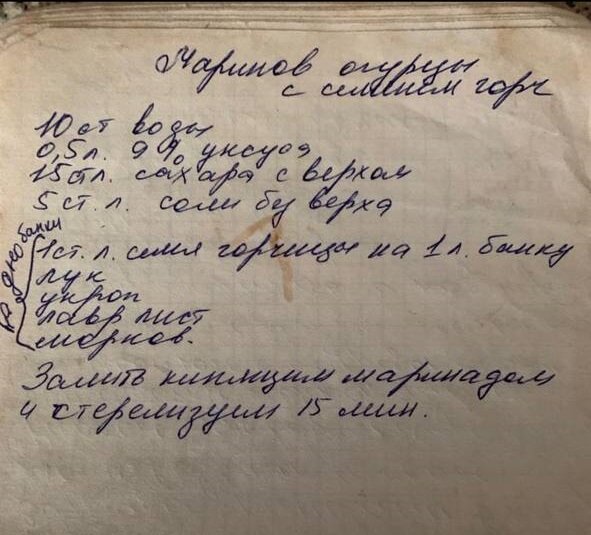 Маринов огурцы
с семенем горч
10 ст воды
0,5 л. 9% уксуса
15 ст л. сахара с верхом
5 ст. л. соли бу верха
на дно банки
1 ст. л. семя горчицы на 1 л. банку
лук
укроп
лавр лист
морков.
Залить кипящим маринадом
и стерелизуем 15 мин.